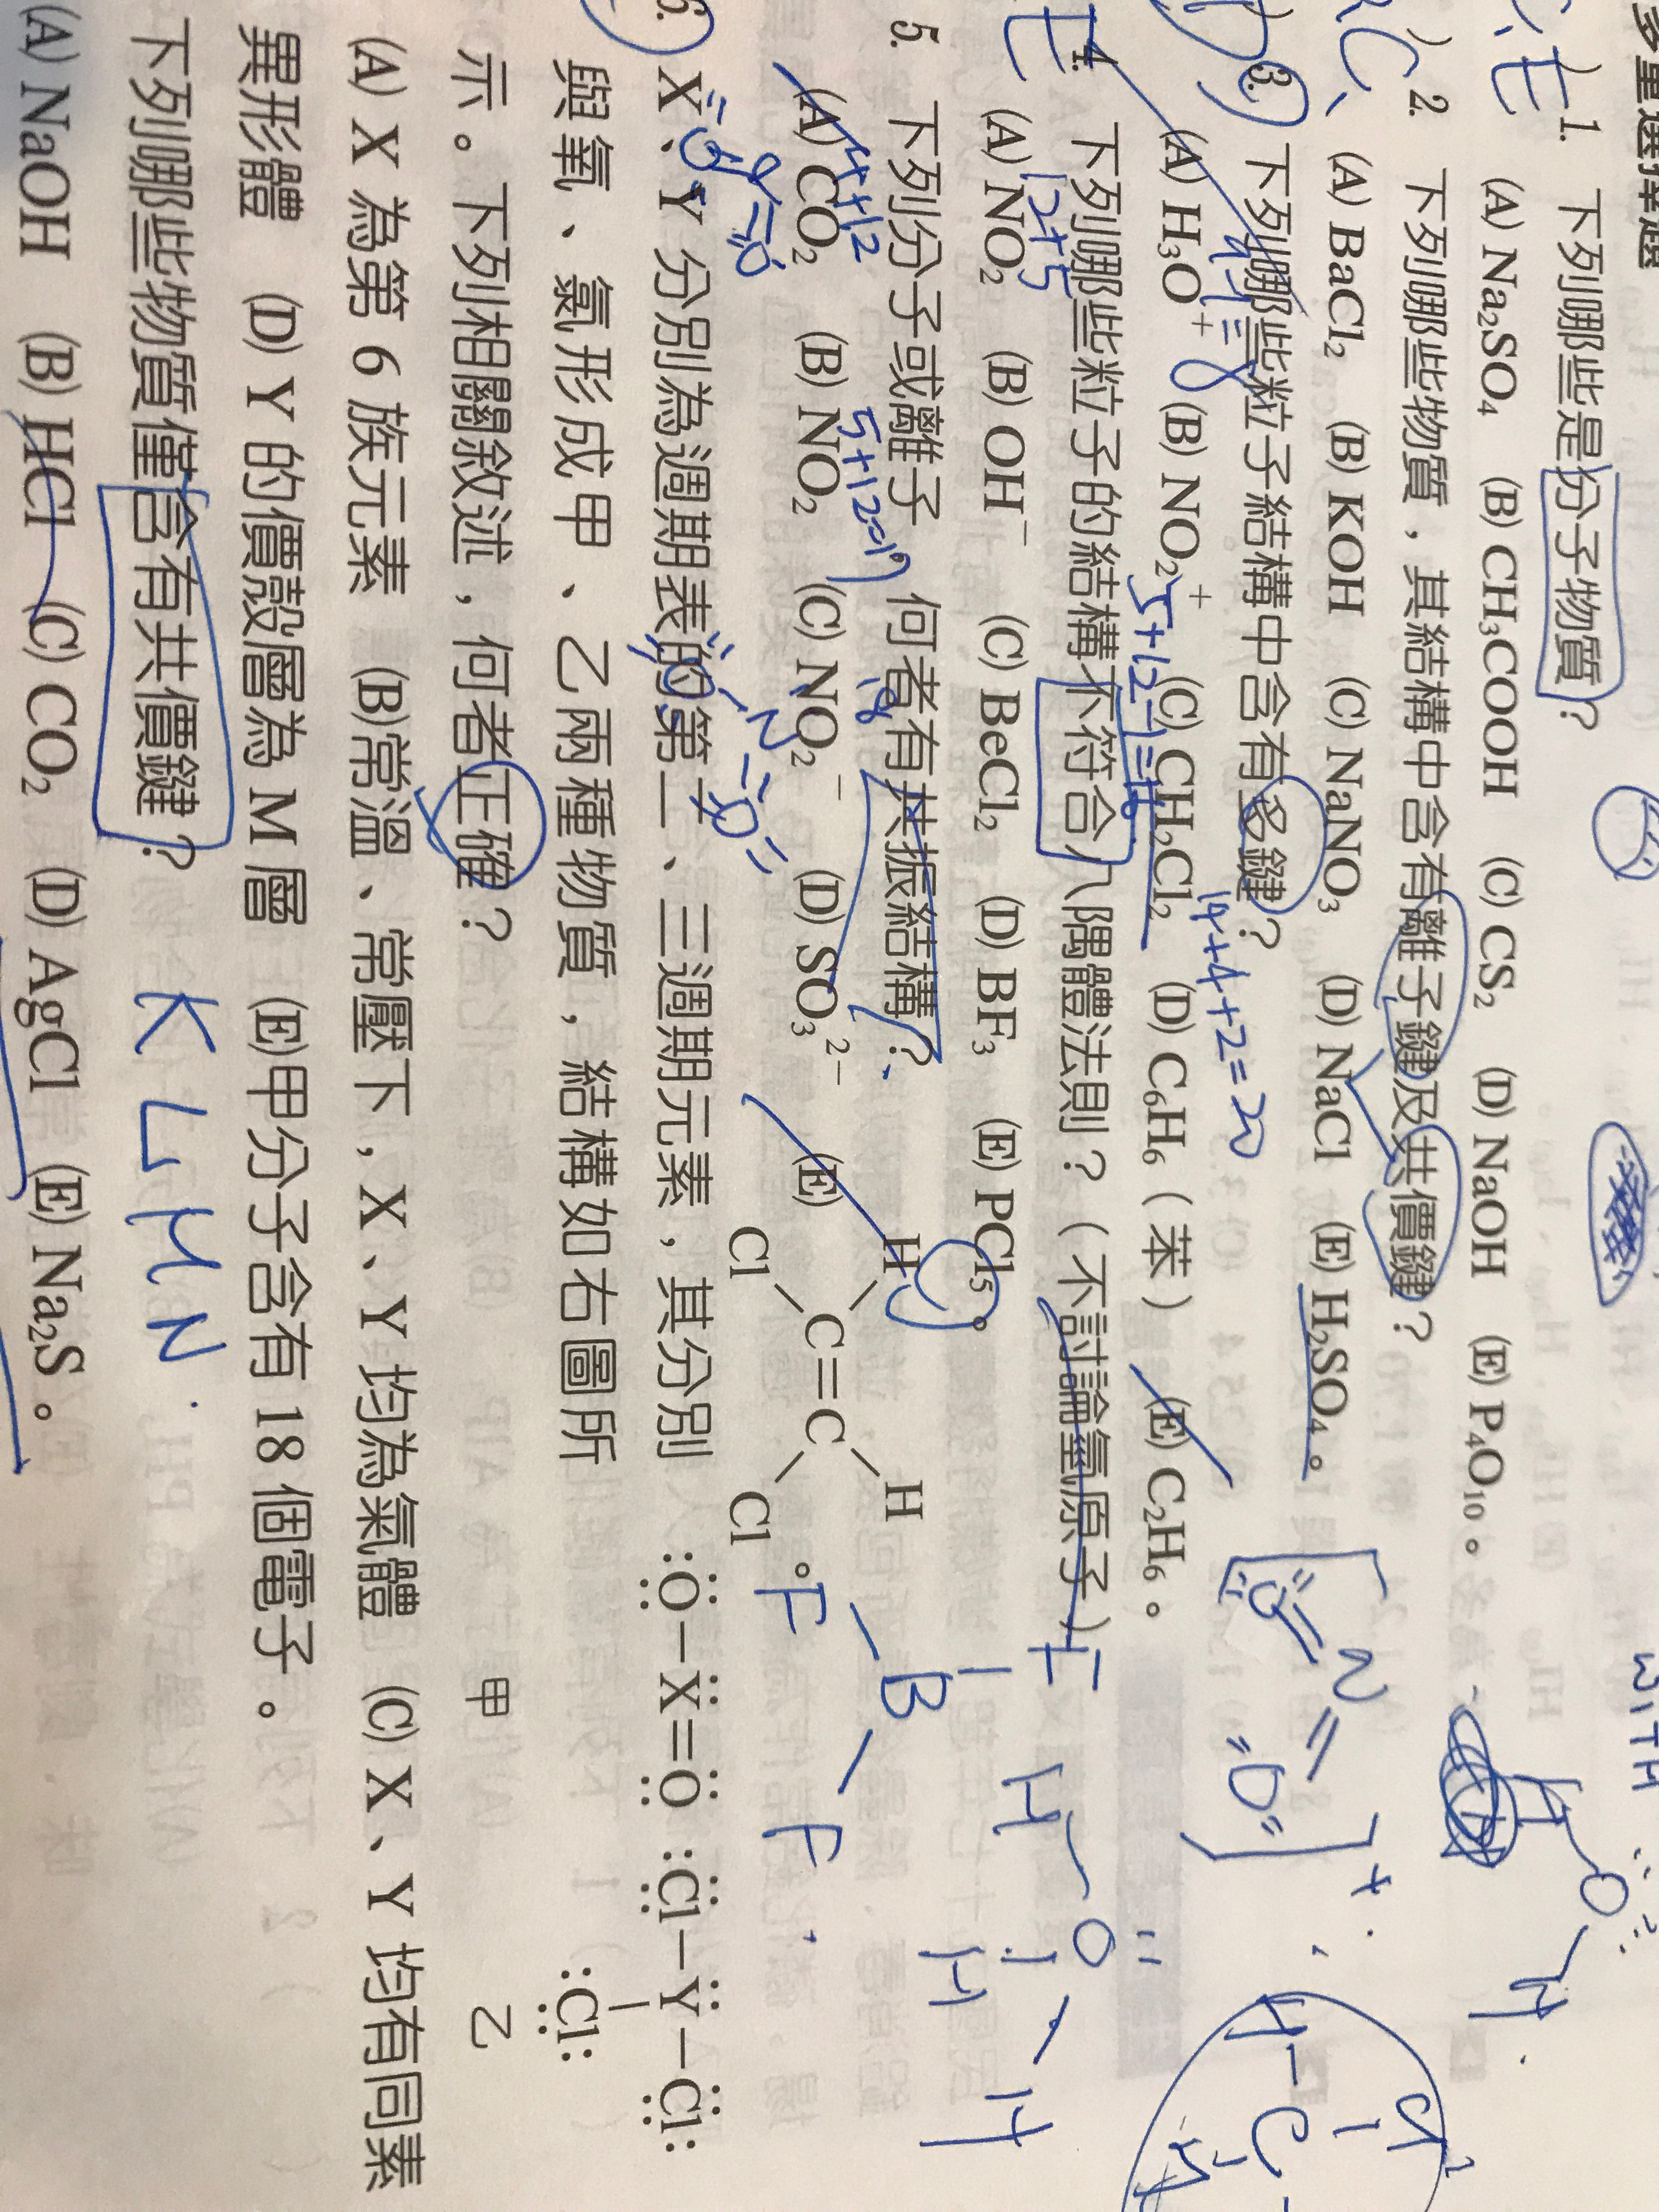 多重選擇題
1. 下列哪些是分子物質？
(A) Na₂SO₄ (B) CH₃COOH (C) CS₂ (D) NaOH (E) P₄O₁₀。
2. 下列哪些物質，其結構中含有離子鍵及共價鍵？
(A) BaCl₂ (B) KOH (C) NaNO₃ (D) NaCl (E) H₂SO₄。
3. 下列哪些粒子結構中含有多鍵？
(A) H₃O⁺ (B) NO₂⁺ (C) CH₂Cl₂ (D) C₆H₆（苯） (E) C₂H₆。
4. 下列哪些粒子的結構不符合八隅體法則？（不討論氫原子）
(A) NO₂ (B) OH⁻ (C) BeCl₂ (D) BF₃ (E) PCl₅。
5. 下列分子或離子，何者有共振結構？
(A) CO₂ (B) NO₂ (C) NO₂⁻ (D) SO₃²⁻ (E)
H H
C=C
Cl Cl。
6. X、Y 分別為週期表的第二、三週期元素，其分別
與氧、氯形成甲、乙兩種物質，結構如右圖所
示。下列相關敘述，何者正確？
:O－X=O :Cl－Y－Cl:
:Cl:
甲 乙
(A) X 為第 6 族元素 (B)常溫、常壓下，X、Y 均為氣體 (C) X、Y 均有同素
異形體 (D) Y 的價殼層為 M 層 (E)甲分子含有 18 個電子。
下列哪些物質僅含有共價鍵？
(A) NaOH (B) HCl (C) CO₂ (D) AgCl (E) Na₂S。
C、E
12+5
4+12
5+12=
14+4+2=20
K L M N
F
F－B－F
H－O－H
H
WITH